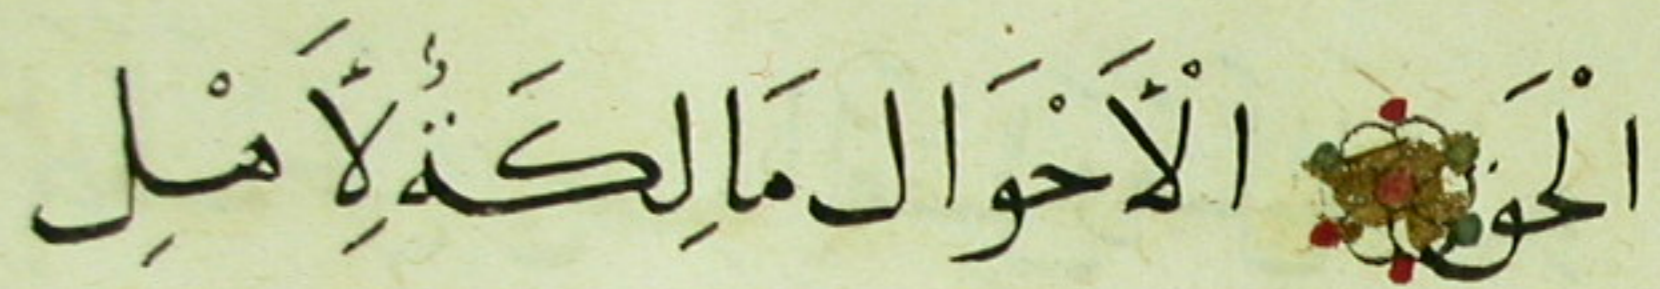 الْأَحْوَال مَالِكَةُ لِأَهْلِ